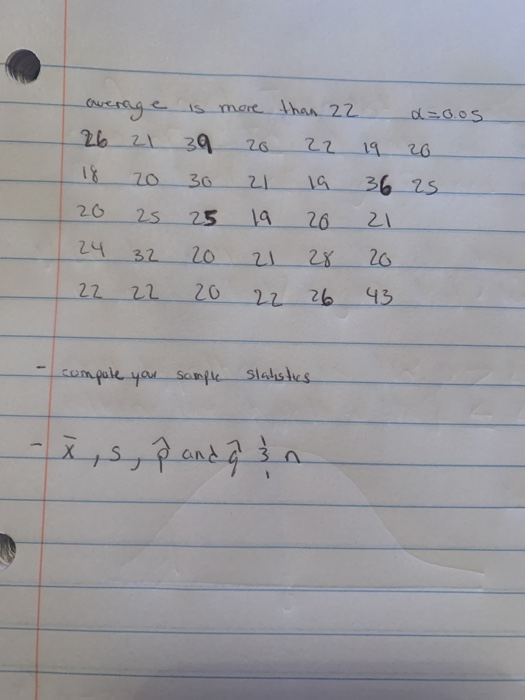 average is more than 22 α=0.05
26 21 39 20 22 19 20
18 20 30 21 19 36 25
20 25 25 19 20 21
24 32 20 21 28 20
22 22 20 22 26 43
- compute your sample statistics
- x̄, s, p̂ and q̂ & n